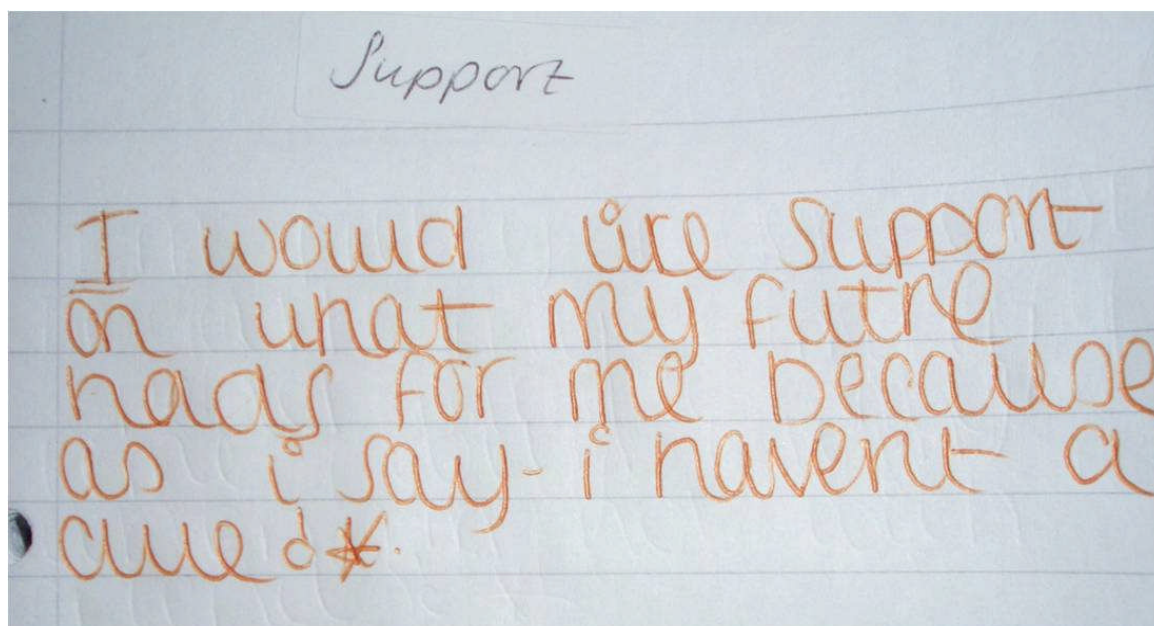 Support
I would like Support
on what my futre
holds for me because
as i say - i havent a
clue